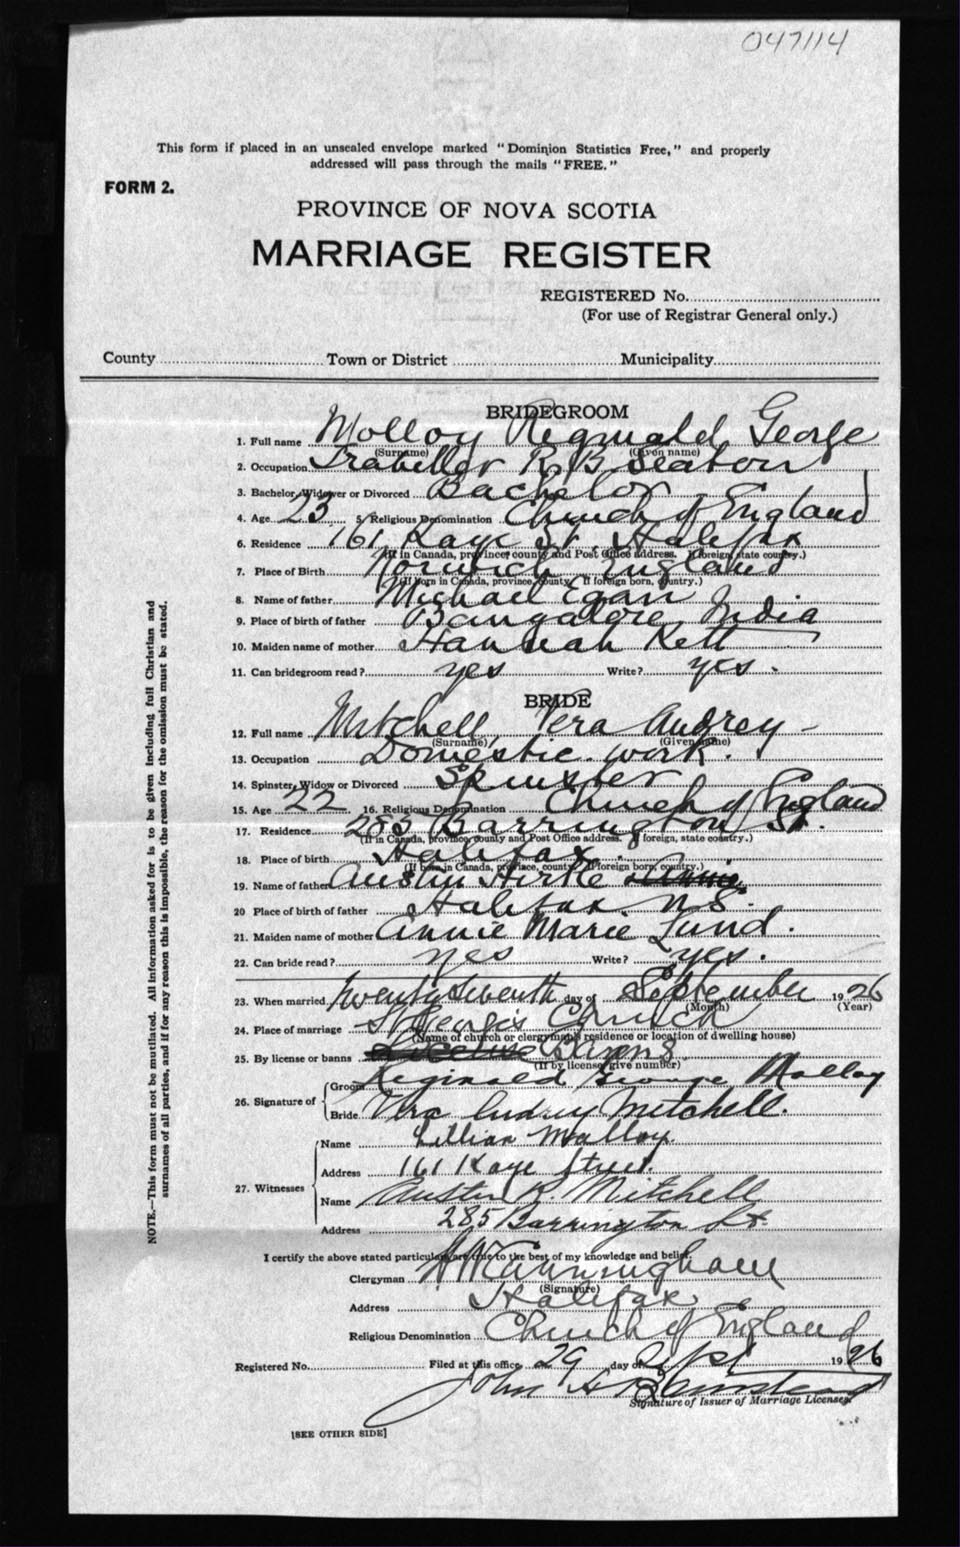 047114
This form if placed in an unsealed envelope marked "Dominion Statistics Free," and properly
addressed will pass through the mails "FREE."
FORM 2.
PROVINCE OF NOVA SCOTIA
MARRIAGE REGISTER
REGISTERED No.
(For use of Registrar General only.)
County Town or District Municipality
BRIDEGROOM
1. Full name Molloy Reginald George
(Surname) (Given name)
2. Occupation Traveller R. B. Seaton
3. Bachelor, Widower or Divorced Bachelor
4. Age 23 5. Religious Denomination Church of England
6. Residence 161 Kaye St. Halifax
(If in Canada, province, county and Post Office address. If foreign, state country.)
7. Place of Birth Norwich England
(If born in Canada, province, county. If foreign born, country.)
8. Name of father Michael Egan
9. Place of birth of father Bangalore, India
10. Maiden name of mother Hannah Kett
11. Can bridegroom read? yes Write? yes.
BRIDE
12. Full name Mitchell Vera Audrey
(Surname) (Given name)
13. Occupation Domestic work.
14. Spinster, Widow or Divorced Spinster
15. Age 22 16. Religious Denomination Church of England
17. Residence 285 Barrington St.
(If in Canada, province, county and Post Office address. If foreign, state country.)
18. Place of birth Halifax.
(If born in Canada, province, county. If foreign born, country.)
19. Name of father Austin
20 Place of birth of father Halifax. N.S.
21. Maiden name of mother Annie Marie Lund.
22. Can bride read? yes Write? yes.
23. When married Twenty Seventh day of September 1926
(Month) (Year)
24. Place of marriage St George's Church
(Name of church or clergyman's residence or location of dwelling house)
25. By license or banns License Banns.
(If by license, give number)
26. Signature of
Groom Reginald George Molloy
Bride Vera Audrey Mitchell.
27. Witnesses
Name Lillian Molloy.
Address 161 Kaye Street.
Name Austin K. Mitchell
Address 285 Barrington St.
I certify the above stated particulars are true to the best of my knowledge and belief.
Clergyman Cunningham
(Signature)
Address Halifax
Religious Denomination Church of England
Registered No. Filed at this office 29 day of Sept 1926
John A
Signature of Issuer of Marriage Licenses.
[SEE OTHER SIDE]
NOTE.—This form must not be mutilated. All information asked for is to be given including full Christian and
surnames of all parties, and if for any reason this is impossible, the reason for the omission must be stated.